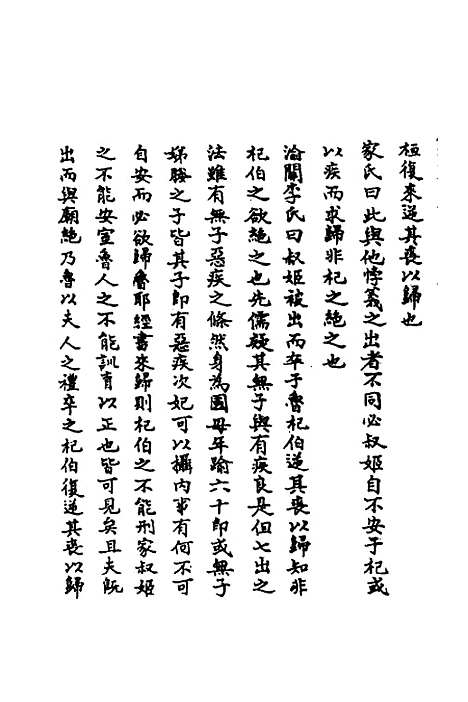 桓復來逆其喪以歸也
家氏曰此與他悖義之出者不同必叔姬自不安于杞或
以疾而求歸非杞之絶之也
渝關李氏曰叔姬被出而卒于魯杞伯逆其喪以歸知非
杞伯之欲絶之也先儒疑其無子與有疾良是但七出之
法雖有無子惡疾之條然身為國母年踰六十即或無子
娣媵之子皆其子即有惡疾次妃可以攝内事有何不可
自安而必欲歸魯耶經書來歸則杞伯之不能刑家叔姬
之不能安室魯人之不能訓育以正也皆可見矣且夫既
出而與廟絶乃魯以夫人之禮卒之杞伯復逆其喪以歸